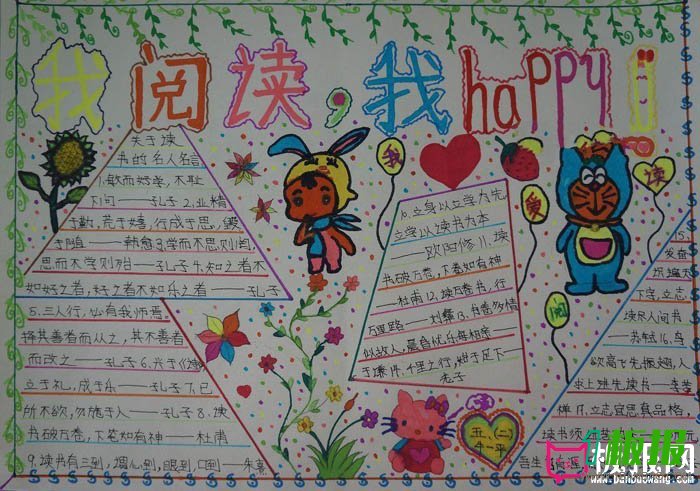 我阅读,我happy!
关于读
书的名人名言
1.敏而好学,不耻
下问——孔子 2.业精
于勤,荒于嬉,行成于思,毁
于随——韩愈 3.学而不思则罔,
思而不学则殆——孔子 4.知之者不
如好之者,好之者不如乐之者——孔子
5.三人行,必有我师焉
择其善者而从之,其不善者
而改之——孔子 6.兴于《诗》
立于礼,成于乐——孔子 7.己
所不欲,勿施于人——孔子 8.读
书破万卷,下笔如有神——杜甫
9.读书有三到,谓心到,眼到 口到——朱熹
我
爱
阅
读
10.立身以立学为先
立学以读书为本
——欧阳修 11.读
书破万卷,下卷如有神
——杜甫 12.读万卷书,行
万里路——刘彝 13.书卷多情
似故人,晨昏忧乐每相亲——
于谦 14.千里之行,始于足下——
老子
五、(二)
15.
发奋
下字,立志
读尽人间书
——苏轼 16.鸟
欲高飞先振翅,人
求上进先读书——李苦
禅 17.立志宜思真品格,
读书须
吾生
板报
板报网
www.banbaowang.com